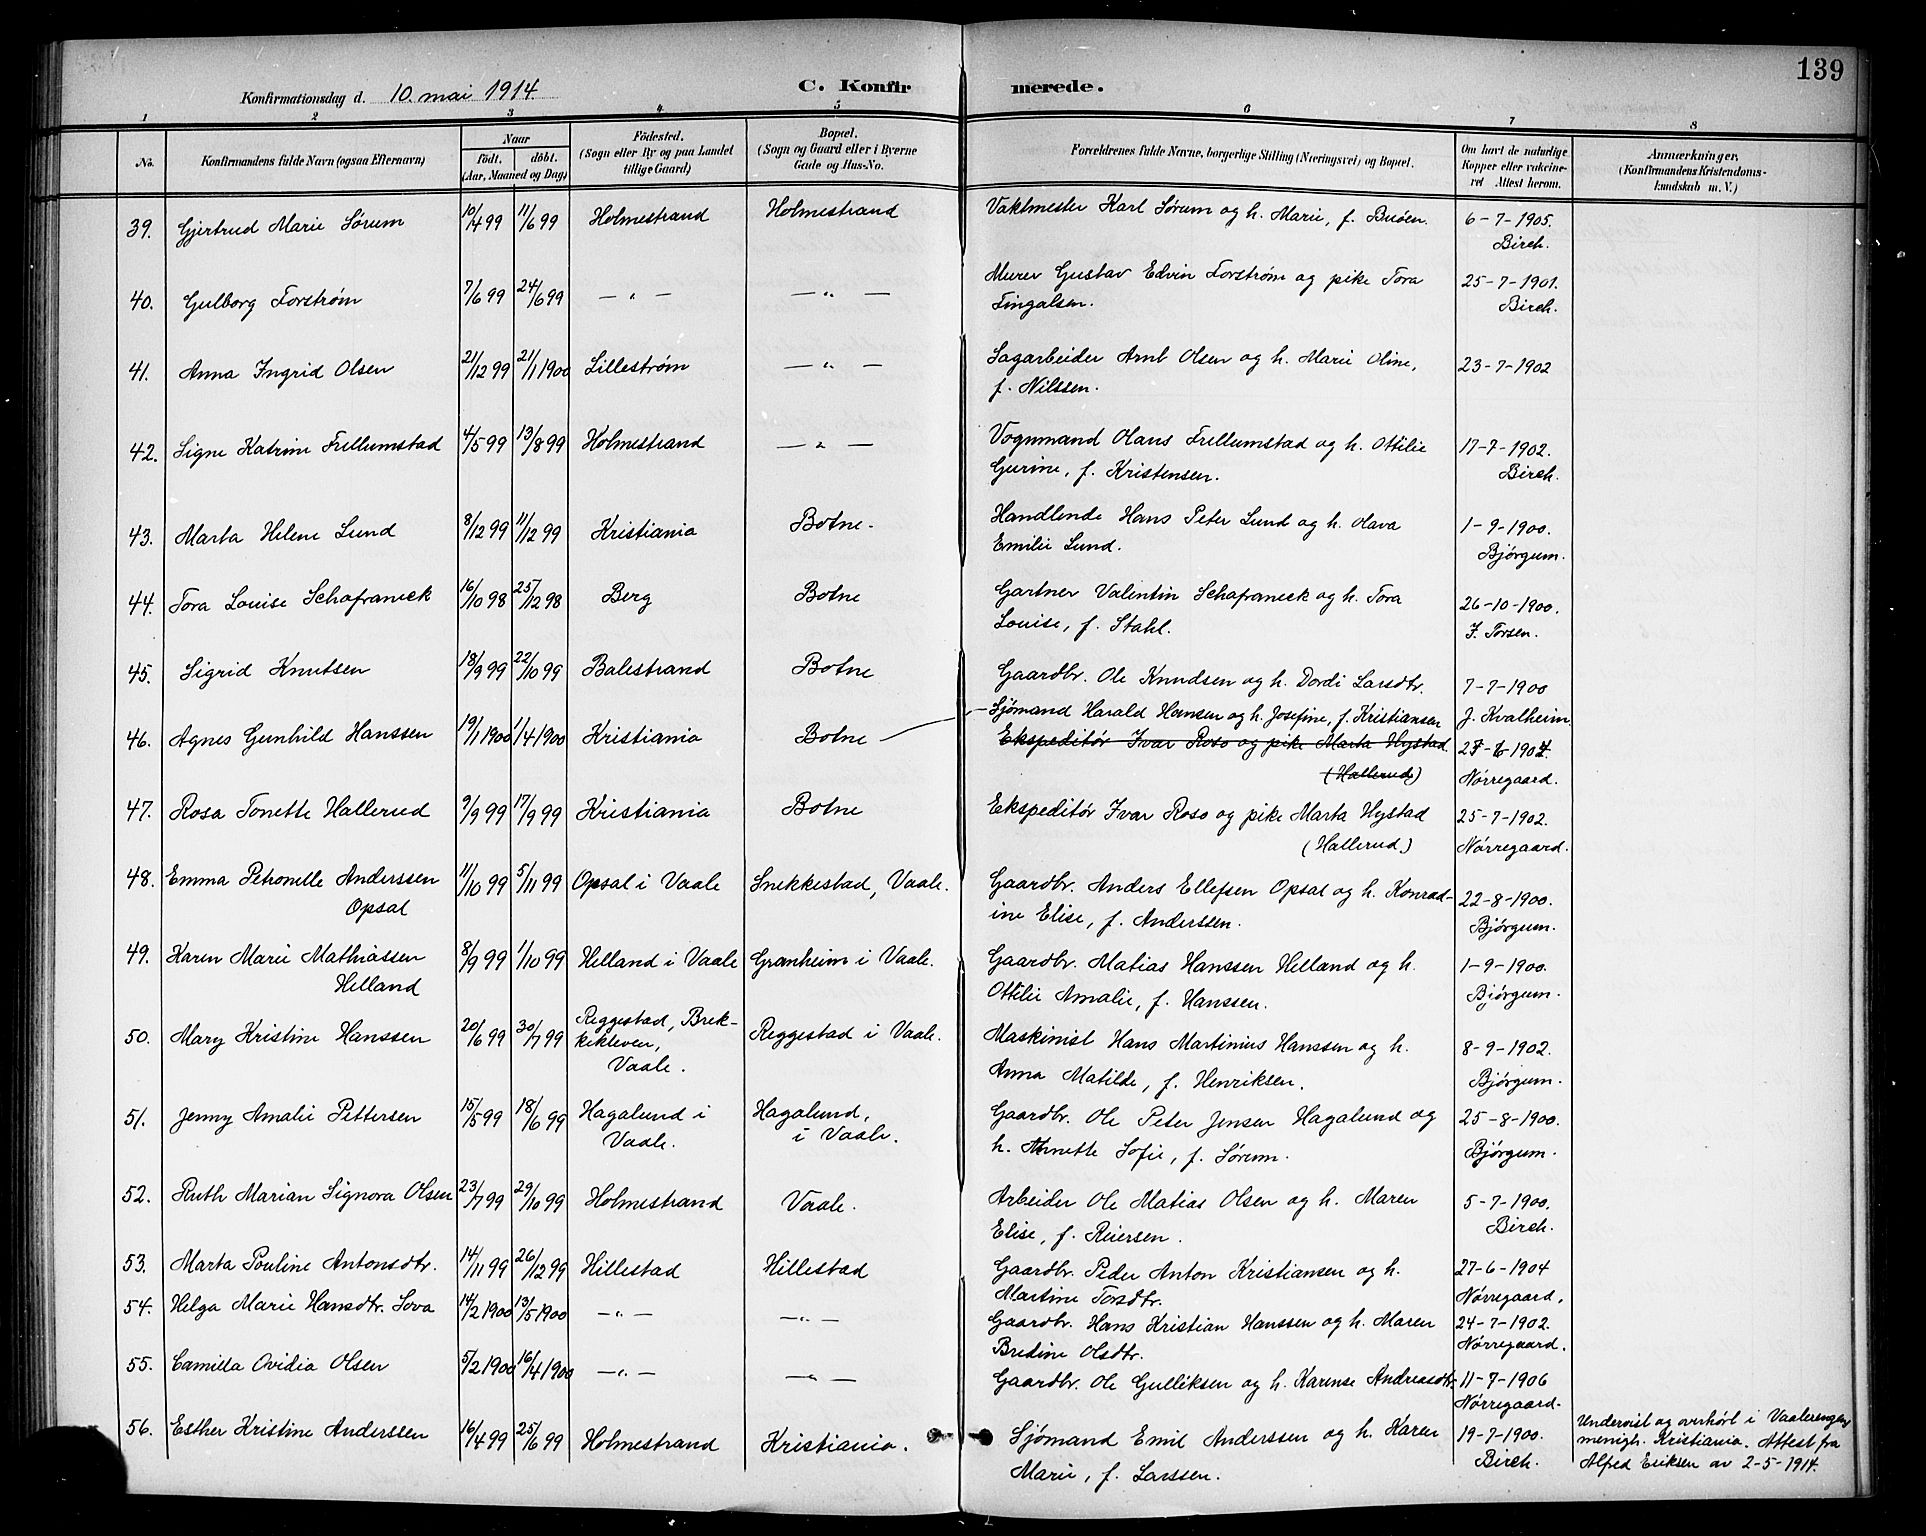 139
Konfirmationsdag d. 10. mai 1914. C. Konfirmerede.
1 2 3 4 5 6 7 8
No. Konfirmandens fulde Navn (ogsaa Efternavn) Naar født. døbt. (Aar, Maaned og Dag) Födested. (Sogn eller By og paa Landet tillige Gaard) Bopæl. (Sogn og Gaard eller i Byerne Gade og Hus-No. Forældrenes fulde Navne, borgerlige Stilling (Næringsvei) og Bopæl. Om havt de naturlige Kopper eller vakcineret Attest herom. Anmærkninger. (Konfirmandens Kristendomskundskab m. V.)
39. Gjertrud Marie Sørum 10/4 99 11/6 99 Holmestrand Holmestrand Vaktmester Karl Sørum og h. Marie, f. Buöen. 6-7-1905.
Birch.
40. Gulborg Forstrøm 7/6 99 24/6 99 — " — — " — Murer Gustav Edvin Forstrøm og pike Tora 25-7-1901.
Fingalsen. Birch.
41. Anna Ingrid Olsen 21/12 99 21/1 1900 Lillestrøm — " — Sagarbeider Arnt Olsen og h. Marie Oline, 23-7-1902
f. Nilssen.
42. Signe Katrine Frellumstad 4/5 99 13/8 99 Holmestrand — " — Vognmand Olaus Frellumstad og h. Ottilie 17-7-1902.
Gurine, f. Kristensen. Birch.
43. Marta Helene Lund 8/12 99 11/12 99 Kristiania Botne. Handlende Hans Peter Lund og h. Olava 1-9-1900.
Emilie Lund. Bjørgum.
44. Tora Louise Schafraneck 16/10 98 25/12 98 Berg Botne Gartner Valentin Schafraneck og h. Tora 26-10-1900.
Louise, f. Stahl. J. Torsen.
45. Sigrid Knutsen 18/9 99 22/10 99 Balestrand Botne Gaardbr. Ole Knudsen og h. Dordi Larsdtr. 7-7-1900
Sjømand Harald Hansen og h. Josefine, f. Kristiansen J. Kvalheim
46. Agnes Gunhild Hanssen 19/1 1900 1/4 1900 Kristiania Botne Ekspeditör Ivar Roso og pike Marta Hystad. 27-6-1904.
(Hallerud) Nørregaard.
47. Rosa Tonette Hallerud 9/9 99 17/9 99 Kristiania Botne Ekspeditör Ivar Roso og pike Marta Hystad 25-7-1902.
(Hallerud) Nørregaard.
48. Emma Petronelle Anderssen 11/10 99 5/11 99 Opsal i Vaale Snekkestad, Vaale. Gaardbr. Anders Ellefsen Opsal og h. Konrad- 22-8-1900.
Opsal ine Elise, f. Anderssen. Bjørgum.
49. Karen Marie Mathiassen 8/9 99 1/10 99 Helland i Vaale Granheim i Vaale. Gaardbr. Matias Hanssen Helland og h. 1-9-1900.
Helland Ottilie Amalie, f. Hanssen. Bjørgum.
50. Mary Kristine Hanssen 20/6 99 30/7 99 Reggestad, Brek- Reggestad i Vaale. Maskinist Hans Martinius Hanssen og h. 8-9-1902.
kekleven,
Vaale. Anna Matilde, f. Henriksen. Bjørgum.
51. Jenny Amalie Pettersen 15/5 99 18/6 99 Hagalund i Hagalund, Gaardbr. Ole Peter Jensen Hagalund og 25-8-1900.
Vaale. i Vaale. h. Annette Sofie, f. Sørum. Bjørgum.
52. Ruth Marian Signora Olsen 23/7 99 29/10 99 Holmestrand Vaale. Arbeider Ole Matias Olsen og h. Maren 5-7-1900.
Elise, f. Reiersen. Birch.
53. Marta Pouline Antonsdtr. 14/11 99 26/12 99 Hillestad Hillestad Gaardbr. Peder Anton Kristiansen og h. 27-6-1904
Martine Torsdtr. Nørregaard.
54. Helga Marie Hansdtr. Sova 14/2 1900 13/5 1900 — " — — " — Gaardbr. Hans Kristian Hanssen og h. Maren 24-7-1902.
Bredine Olsdtr. Nørregaard.
55. Camilla Ovidia Olsen 5/2 1900 16/4 1900 — " — — " — Gaardbr. Ole Gulliksen og h. Karense Andreasdtr. 11-7-1906
Nørregaard.
56. Esther Kristine Anderssen 16/4 99 25/6 99 Holmestrand Kristiania. Sjømand Emil Anderssen og h. Karen 19-7-1900. Undervist og overhørt i Vaalerengen
menigh. Kristiania. Attest fra
Marie, f. Larssen. Birch. Alfred Eriksen av 2-5-1914.